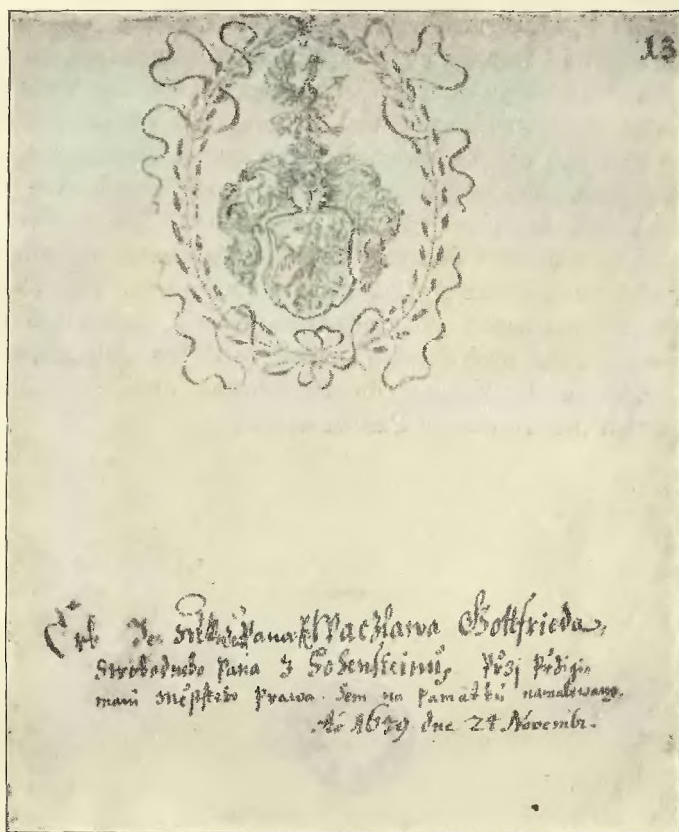 13
Erb Je Pana Waczlawa Gottfrieda,
Swobodneho Pana z Hohensteinu, Przj Przigi-
mani Miestskeho Prawa. Sem na Památku namalewany.
Ao 1679 dne 24 Novembr.